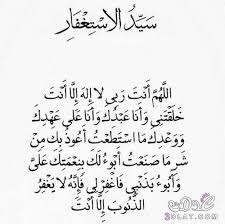 سَيِّدُ الِاسْتِغْفَارِ
اللَّهُمَّ أَنْتَ رَبِّي لَا إِلَهَ إِلَّا أَنْتَ
خَلَقْتَنِي وَأَنَا عَبْدُكَ وَأَنَا عَلَى عَهْدِكَ
وَوَعْدِكَ مَا اسْتَطَعْتُ أَعُوذُ بِكَ مِنْ
شَرِّ مَا صَنَعْتُ أَبُوءُ لَكَ بِنِعْمَتِكَ عَلَيَّ
وَأَبُوءُ بِذَنْبِي فَاغْفِرْ لِي فَإِنَّهُ لَا يَغْفِرُ
الذُّنُوبَ إِلَّا أَنْتَ
3DLAT.COM